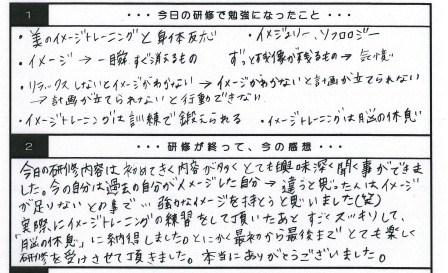 1 ・・・今日の研修で勉強になったこと・・・
・美のイメージトレーニングと身体反応 ・イメジェリー、ソフロロジー
・イメージ → 一瞬 すぐ消えるもの ずっと残像が残るもの → 気憶
・リラックスしないとイメージがわかない → イメージがわかないと計画が立てられない
→ 計画が立てられないと行動できない
・イメージトレーニングは訓練で鍛えられる ・イメージトレーニングは脳の休息
2 ・・・研修が終って、今の感想・・・
今日の研修内容は初めてきく内容が多くとても興味深く聞く事ができま
した。今の自分は過去の自分がイメージした自分 → 違うと思った人はイメージ
が足りないとの事で… 強かなイメージを持とうと思いました(笑)
実際にイメージトレーニングの練習をして頂いたあと すごくスッキリして、
「脳の休息」に納得しました。とにかく最初から最後まで とても楽しく
研修を受けさせて頂きました。本当にありがとうございました。